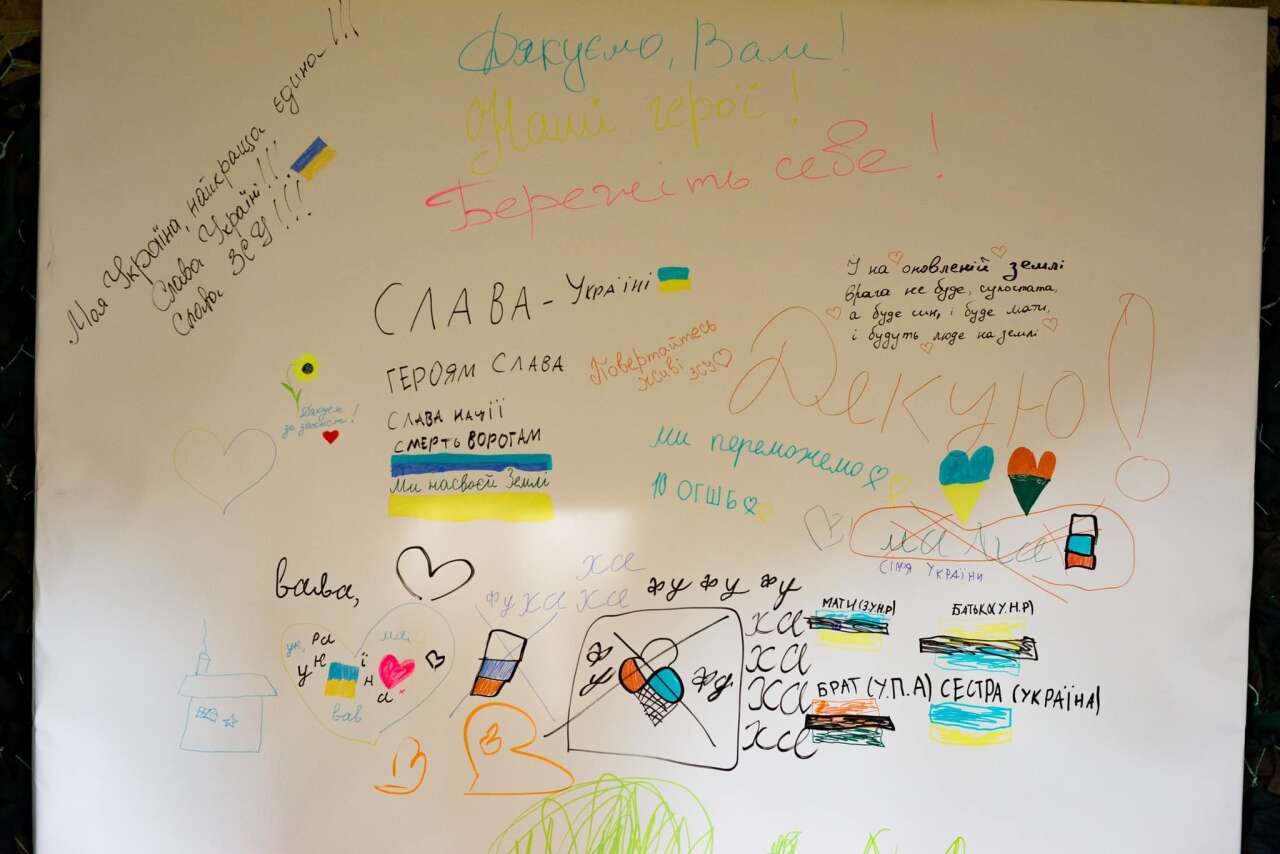 Дякуємо, Вам!
Наші герої!
Бережіть себе!
Моя Україна, найкраща єдина!!!
Слава Україні!!!
Слава ЗСУ!!!
СЛАВА - Україні
ГЕРОЯМ СЛАВА
СЛАВА НАЦІЇ
СМЕРТЬ ВОРОГАМ
Ми насвоєй Землі
Повертайтесь
живі ЗСУ
І на оновленій землі
врага не буде, супостата,
а буде син, і буде мати,
і будуть люде на землі
Дякую!
за захист!
ми переможемо
10 ОГШБ
СІМЯ УКРАЇНИ
вава,
ха
фу ха ха
фу фу фу
фу
фу
ха
ха
ха
ха
МАТИ (З.У.Н.Р)
БАТЬКО (У.Н.Р)
БРАТ (У.П.А)
СЕСТРА (УКРАЇНА)
вав
В
В